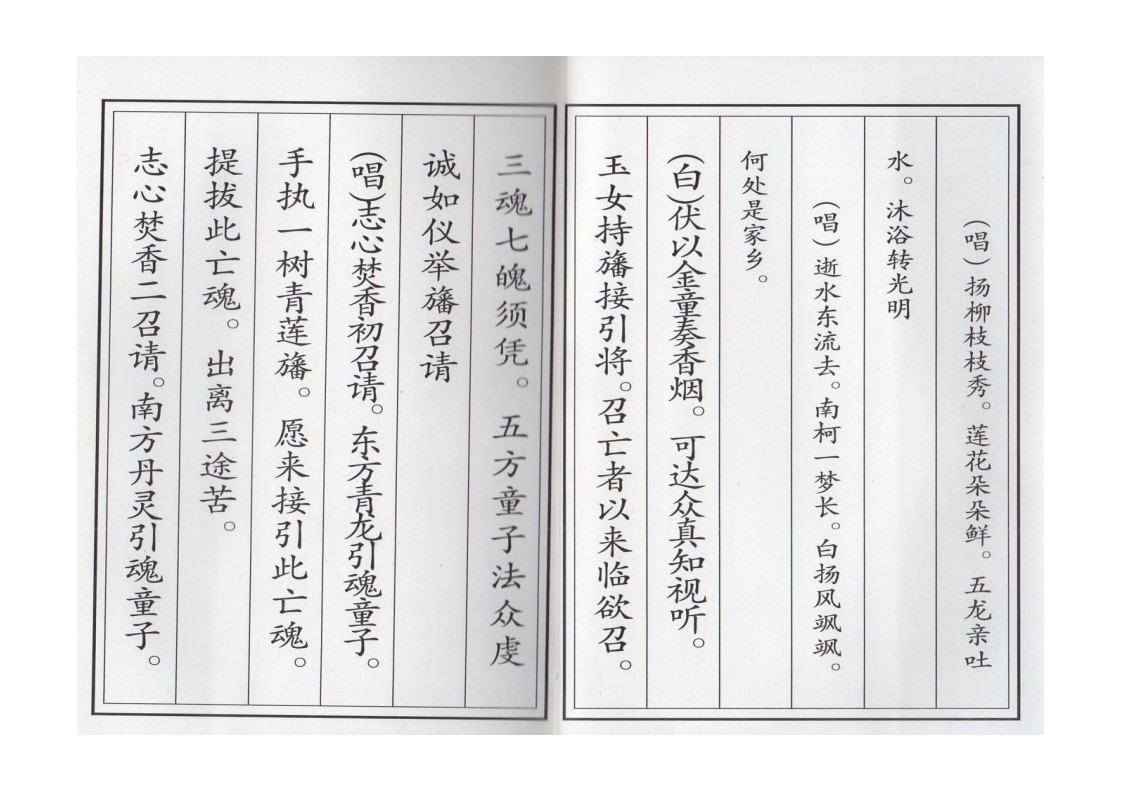 （唱）扬柳枝枝秀。莲花朵朵鲜。五龙亲吐
水。沐浴转光明
（唱）逝水东流去。南柯一梦长。白扬风飒飒。
何处是家乡。
（白）伏以金童奏香烟。可达众真知视听。
玉女持旛接引将。召亡者以来临欲召。
三魂七魄须凭。五方童子法众虔
诚如仪举旛召请
（唱）志心焚香初召请。东方青龙引魂童子。
手执一树青莲旛。愿来接引此亡魂。
提拔此亡魂。出离三途苦。
志心焚香二召请。南方丹灵引魂童子。